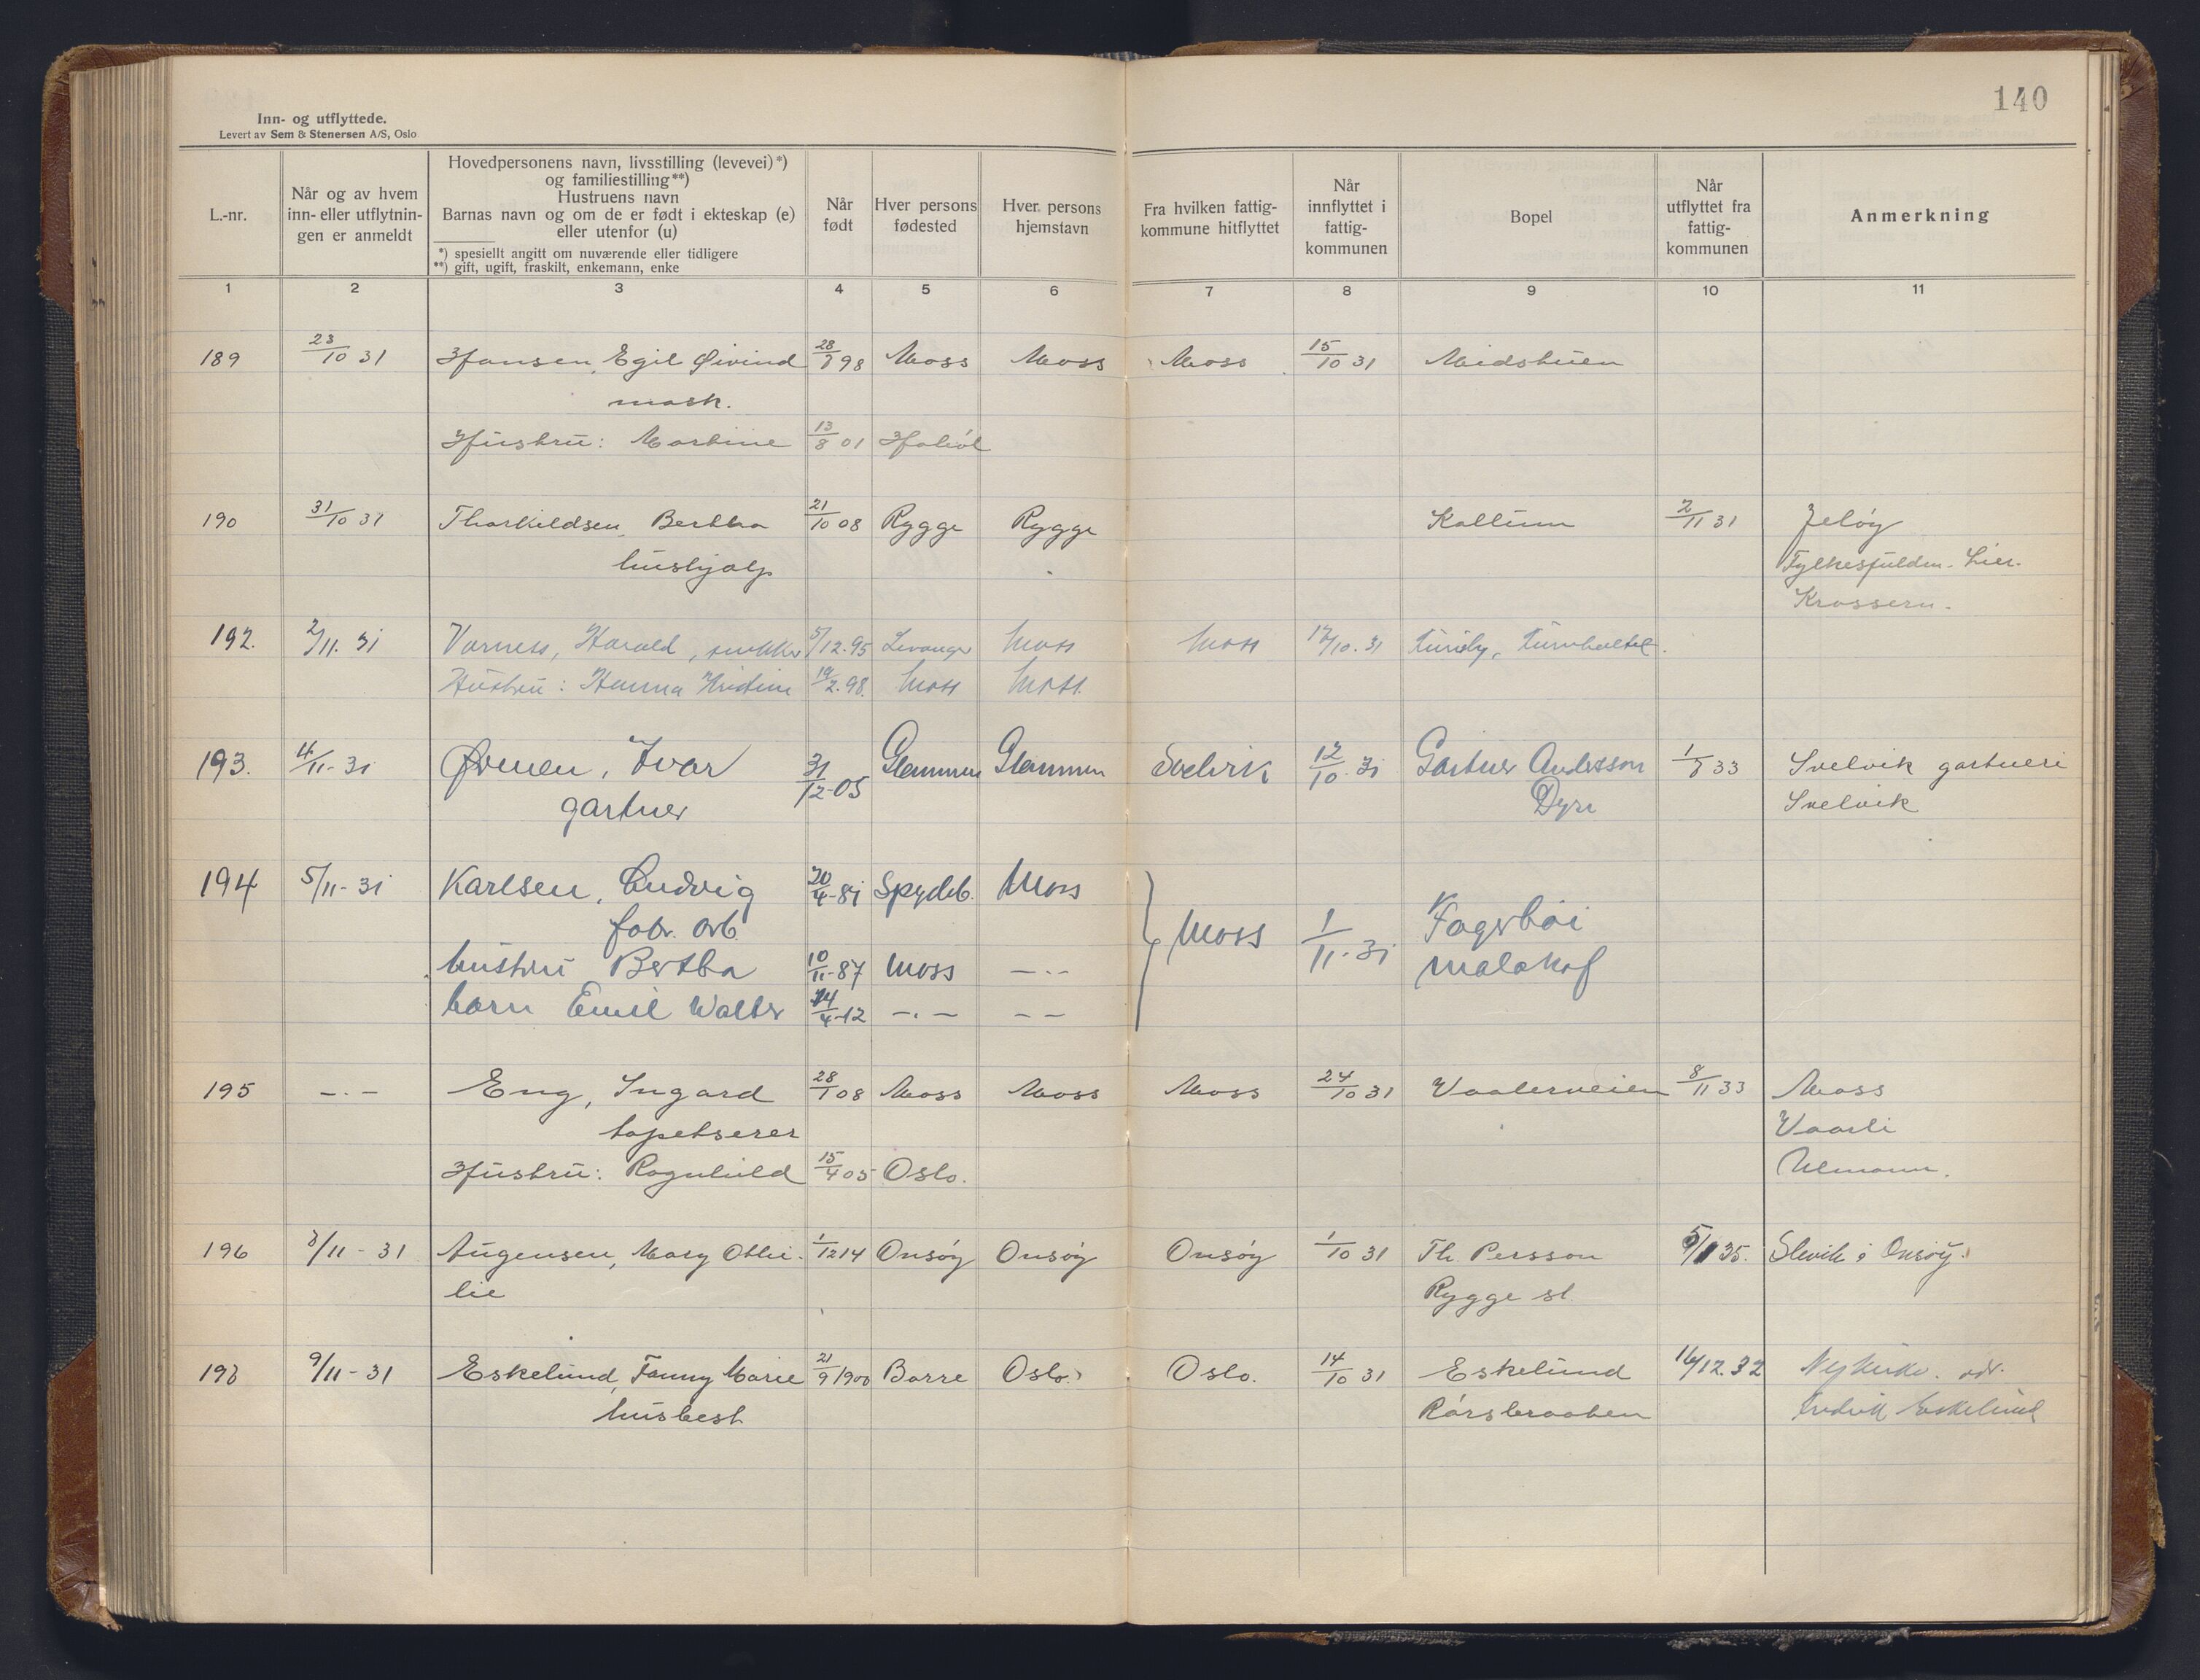 140
Inn- og utflyttede.
Levert av Sem & Stenersen A/S, Oslo
L.-nr.
Når og av hvem
inn- eller utflytnin-
gen er anmeldt
Hovedpersonens navn, livsstilling (levevei)*)
og familiestilling**)
Hustruens navn
Barnas navn og om de er født i ekteskap (e)
eller utenfor (u)
*) spesiellt angitt om nuværende eller tidligere
**) gift, ugift, fraskilt, enkemann, enke
Når
født
Hver persons
fødested
Hver. persons
hjemstavn
Fra hvilken fattig-
kommune hitflyttet
Når
innflyttet i
fattig-
kommunen
Bopel
Når
utflyttet fra
fattig-
kommunen
Anmerkning
1 2 3 4 5 6 7 8 9 10 11
189 23/10 31 Hansen, Egil Øivind 28/8 98 Moss Moss Moss 15/10 31
mask.
Hustru: Martine 13/8 01 Hobøl
190 31/10 31 Thorkildsen, Bertha 21/10 08 Rygge Rygge Kallum 2/11 31 Jeløy
hushjælp
Krossern.
192. 2/11. 31 Varness, Harald, snekker 5/12.95 Levanger Moss Moss 17/10. 31
Hustru: Hanna Kristine 19/2.98. Moss Moss
193. 4/11-31 Ømen, Ivar 31/12-05 Glemmen Glemmen Svelvik 12/10-31 Gartner Andersson 1/8 33 Svelvik gartneri
gartner Dyre Svelvik
194 5/11-31 Karlsen, Ludvig 20/4-81 Spydeb. Moss
fabr. arb. Moss 1/11-31 Fagerhøi
hustru Bertha 10/11-87 Moss —·— Malakof
barn Emil Walter 14/4-12 —·— — —
195 —·— Eng, Ingard 28/1 08 Moss Moss Moss 24/10 31 Vaalerveien 8/11 33 Moss
tapetserer Vaarli
Hustru: Ragnhild 15/4 05 Oslo. Ulmann.
196 8/11-31 Augensen, Mary Otti- 1/12 14 Onsøy Onsøy Onsøy 1/10 31 Th. Persson 5/1 35. Slevik i Onsøy.
lie Rygge st.
198 9/11-31 Eskelund, Fanny Marie 21/9 1900 Borre Oslo. Oslo. 14/10 31 Eskelund 16/12.32 Nykirke. adr.
husbest. Rørsbraaten Fredrik Eskelund